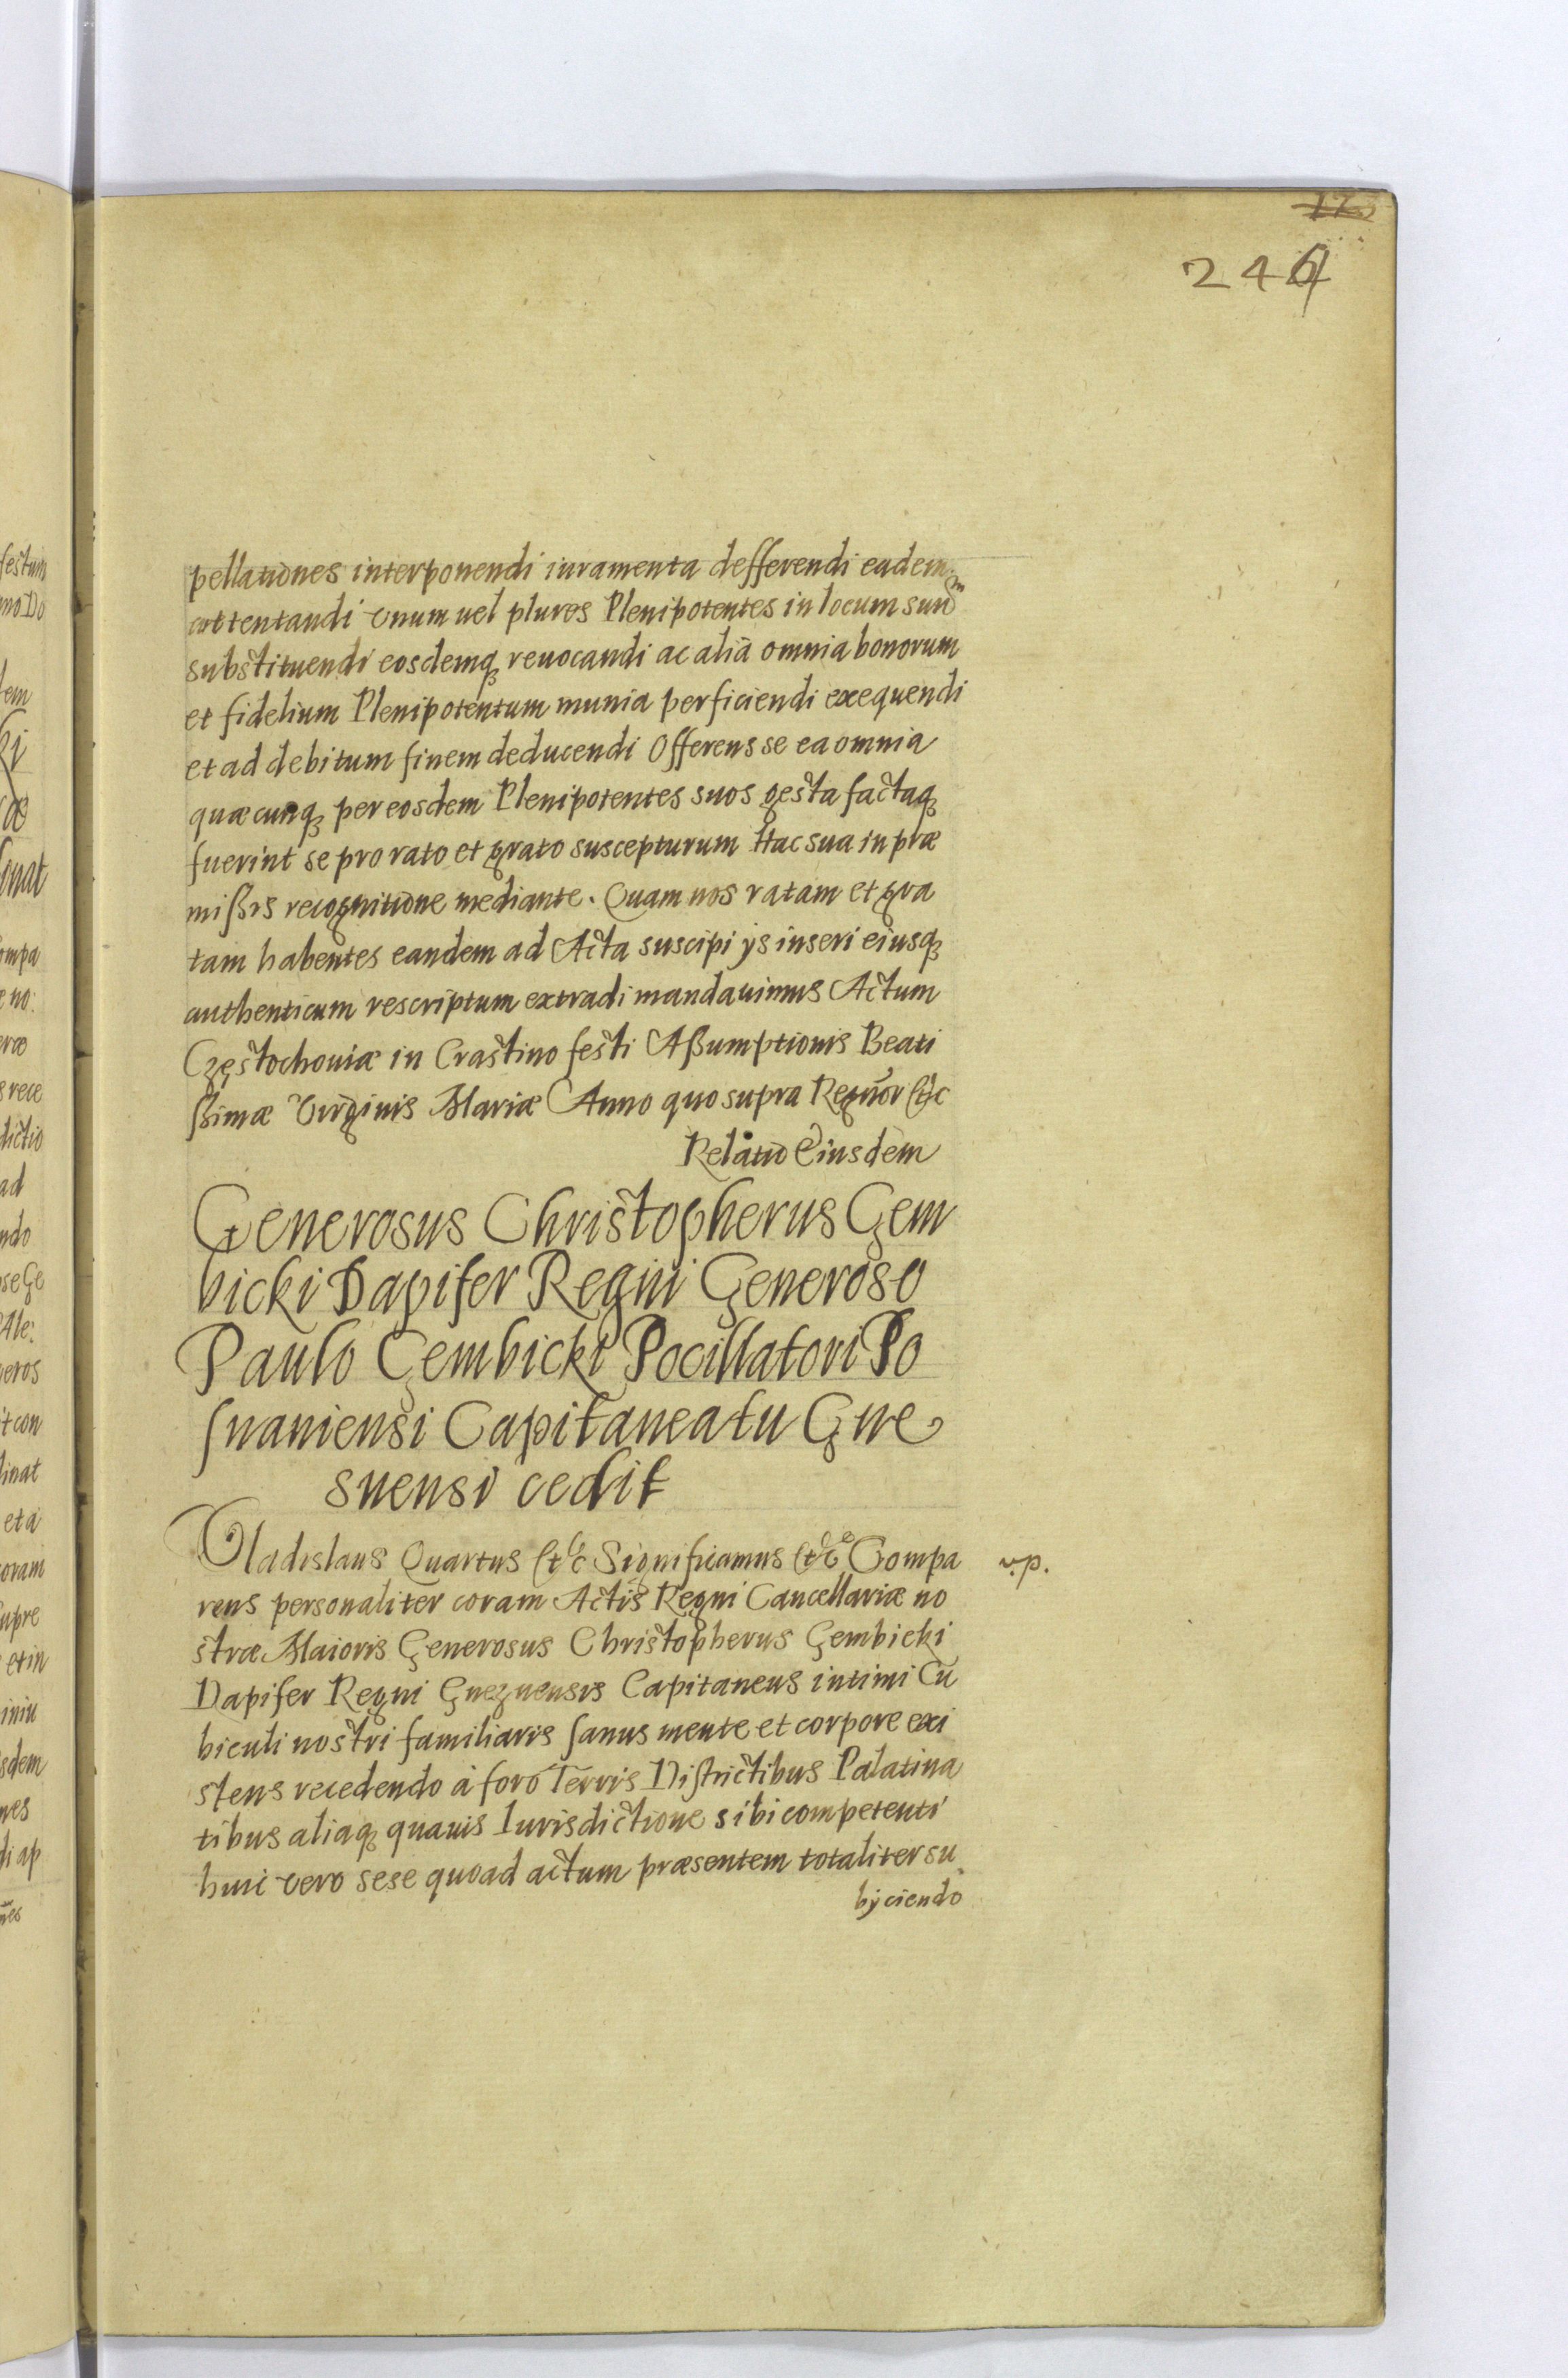 246
pellationes interponendi iuramenta defferendi eadem
attentandi vnum uel plures Plenipotentes in locum suum
substituendi eosdemq reuocandi ac alia omnia bonorum
et fidelium Plenipotentum munia perficiendi exequendi
et ad debitum finem deducendi Offerens se ea omnia
quæcunq per eosdem Plenipotentes suos gesta factaq
fuerint se pro rato et grato suscepturum Hac sua in præ
mißis recognitione mediante. Quam nos ratam et gra
tam habentes eandem ad Acta suscipi ÿs inseri eiusq
authenticum rescriptum extradi mandauimus Actum
Częstochouiæ in Crastino festi Aßumptionis Beati
ßimæ Virginis Mariæ Anno quo supra Regnor Etc
Relatio Eiusdem
Generosus Christopherus Gem
bicki Dapifer Regni Generoso
Paulo Gembicki Pocillatori Po
snaniensi Capitaneatu Gne
snensi cedit
Vladislaus Quartus Etc Significamus Etc Compa
v.p.
rens personaliter coram Actis Regni Cancellariæ no
stræ Maioris Generosus Christopherus Gembicki
Dapifer Regni Gneznensis Capitaneus intimi Cu
biculi nostri familiaris sanus mente et corpore exi
stens recedendo à foro Terris Districtibus Palatina
tibus aliaq quauis Iurisdictione sibi competenti
huic vero sese quoad actum præsentem totaliter su
bÿciendo